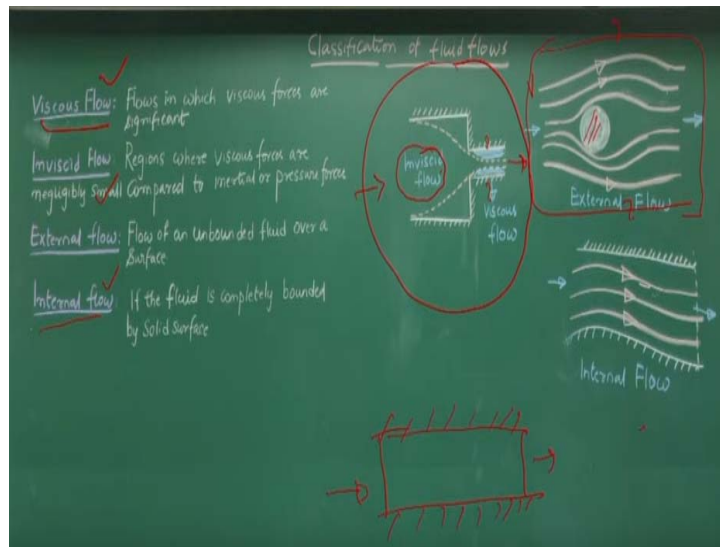 Classification of fluid flows
Viscous Flow: Flows in which viscous forces are
significant
Inviscid Flow: Regions where viscous forces are
negligibly small compared to inertial or pressure forces
External flow: Flow of an unbounded fluid over a
Surface
Internal flow: If the fluid is completely bounded
by solid surface
Inviscid
flow
Viscous
flow
External Flow
Internal Flow